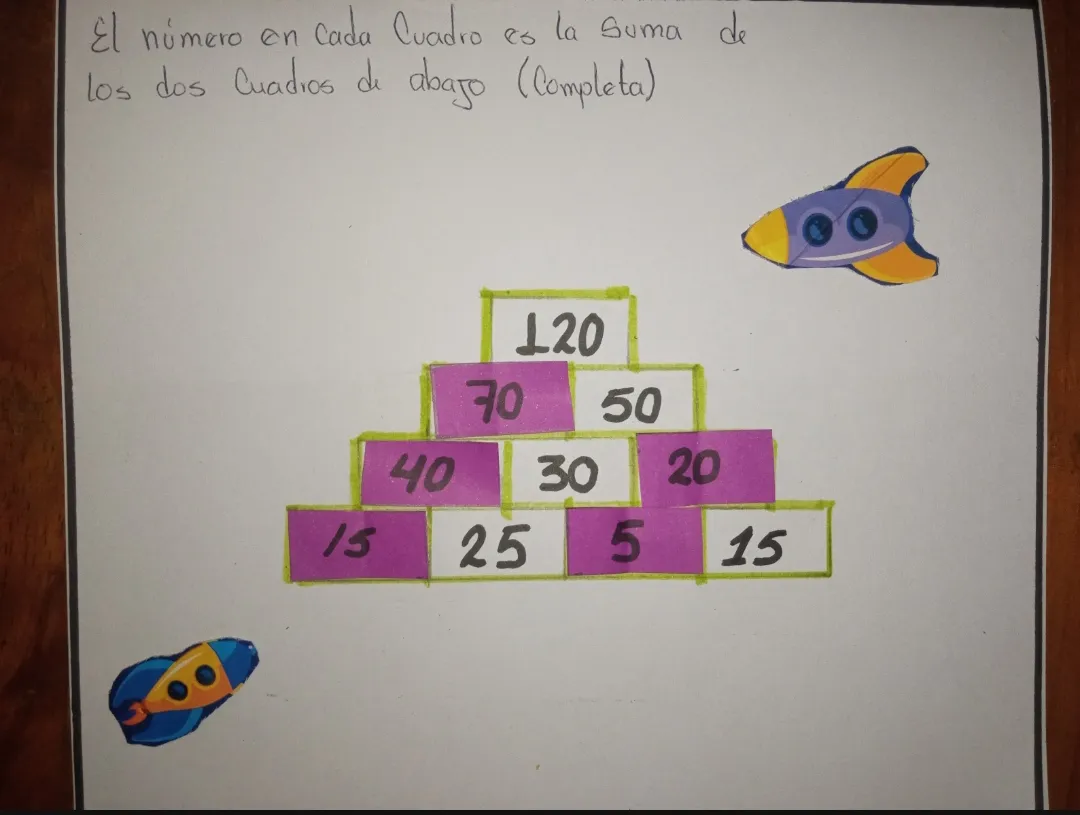 El número en Cada Cuadro es la Suma de
los dos Cuadros de abajo (Completa)
120
70 50
40 30 20
15 25 5 15